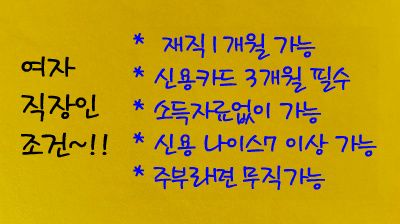 여자
직장인
조건~!!
* 재직1개월 가능
* 신용카드 3개월 필수
* 소득자료없이 가능
* 신용 나이스7 이상 가능
* 주부래면 무직가능